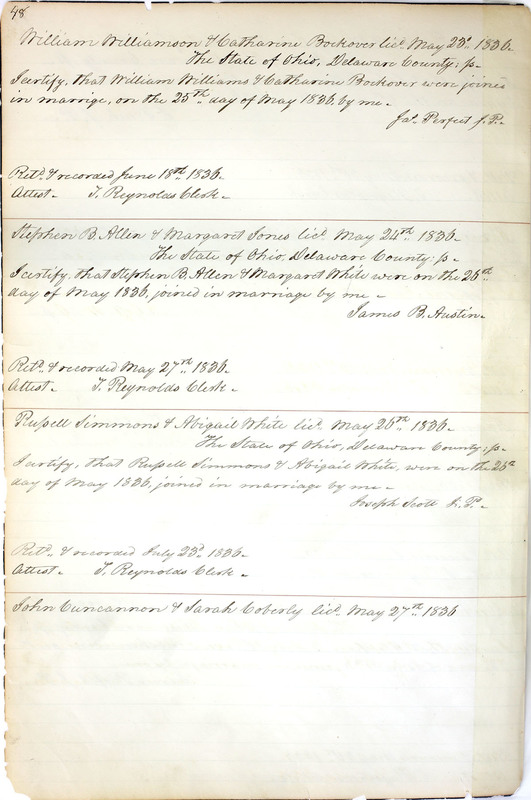 48
William Williamson & Catharine Bockover licd. May 23d. 1836.
The State of Ohio, Delaware County; ss.
I certify, that William Williams & Catharine Bockover were joined
in marrige, on the 25th day of May 1836, by me.
Jas. Perfect J. P.
Retd. & recorded June 18th. 1836.
Attest. T. Reynolds Clerk.
Stephen B. Allen & Margaret Jones licd. May 24th 1836.
The State of Ohio, Delaware County; ss.
I certify, that Stephen B. Allen & Margaret White were on the 26th
day of May 1836, joined in marriage by me.
James B. Austin.
Retd. & recorded May 27th 1836.
Attest. T. Reynolds Clerk.
Russell Simmons & Abigail White licd. May 26th 1836.
The State of Ohio, Delaware County; ss.
I certify, that Russell Simmons & Abigail White, were on the 26th
day of May 1836, joined in marriage by me.
Joseph Scott J. P.
Retd. & recorded July 23d. 1836.
Attest. T. Reynolds Clerk.
John Cuncannon & Sarah Coberly licd. May 27th 1836